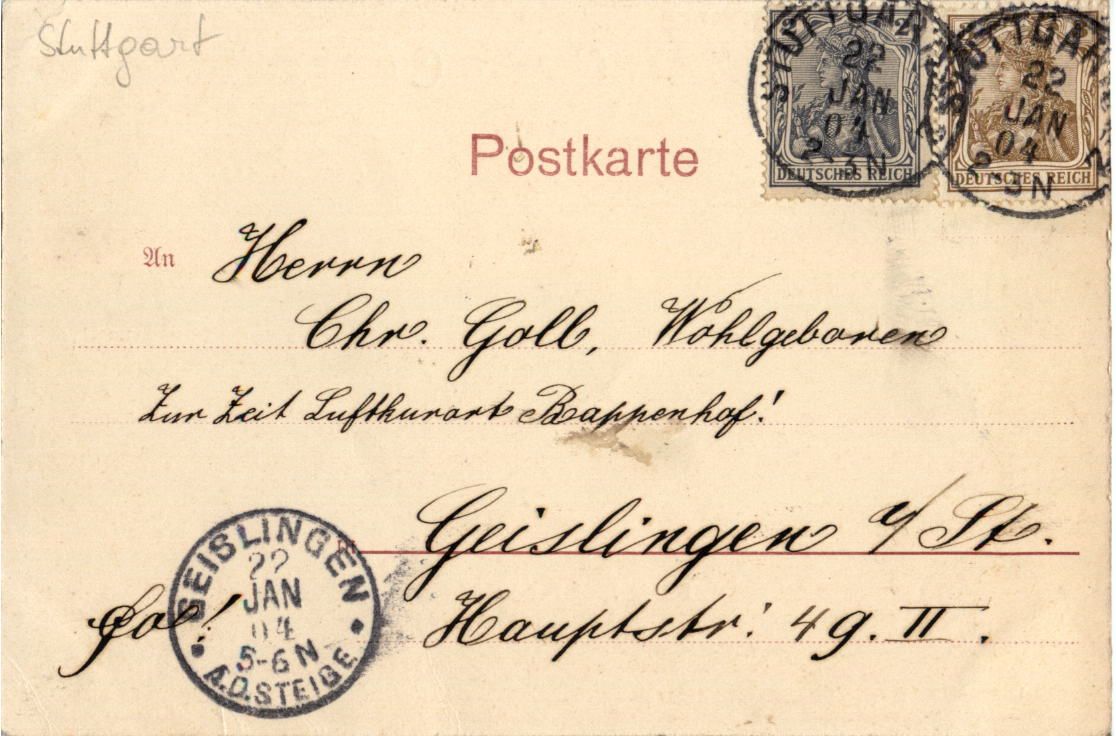 Stuttgart
STUTTGART 2
22
JAN
04
2-3N
DEUTSCHES REICH
STUTTGART 2
22
JAN
04
2-3N
DEUTSCHES REICH
Postkarte
An Herrn
Chr. Goll, Wohlgeboren
Zur Zeit Luftkurort Bappenhof!
Geislingen a/St.
Hauptstr. 49. II.
fo!
GEISLINGEN
22
JAN
04
5-6N
A.D.STEIGE